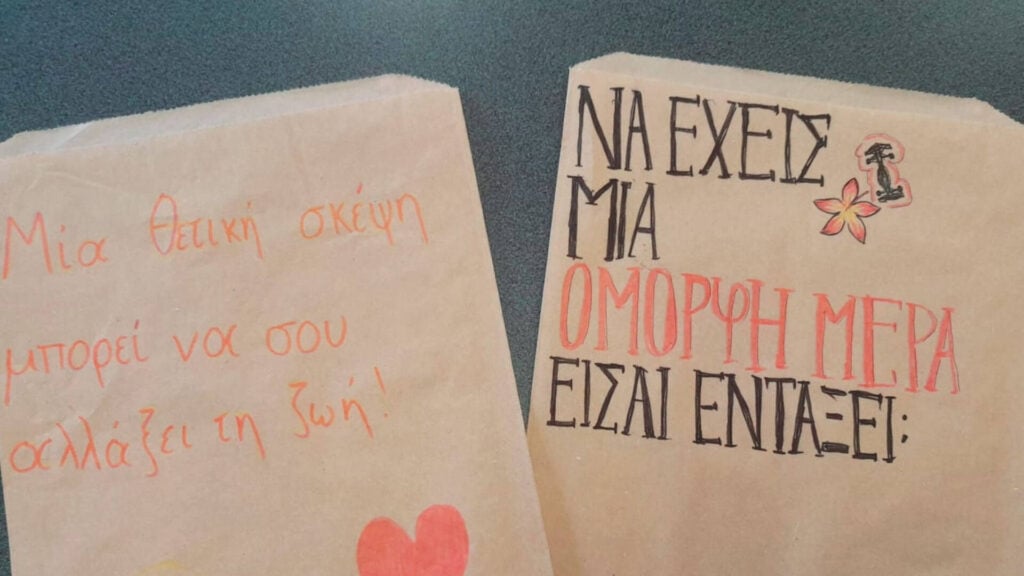 Μία θετική σκέψη
μπορεί να σου
αλλάξει τη ζωή!
ΝΑ ΕΧΕΙΣ
ΜΙΑ
ΟΜΟΡΨΗ ΜΕΡΑ
ΕΙΣΑΙ ΕΝΤΑΞΕΙ: